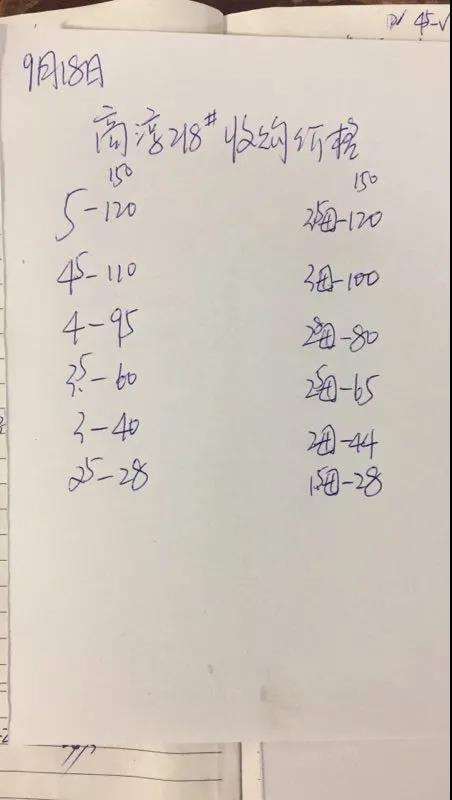 9月18日
高淳218# 收购价格
150 150
5-120 35母-120
45-110 3母-100
4-95 28母-80
3.5-60 25母-65
3-40 2母-44
25-28 15母-28